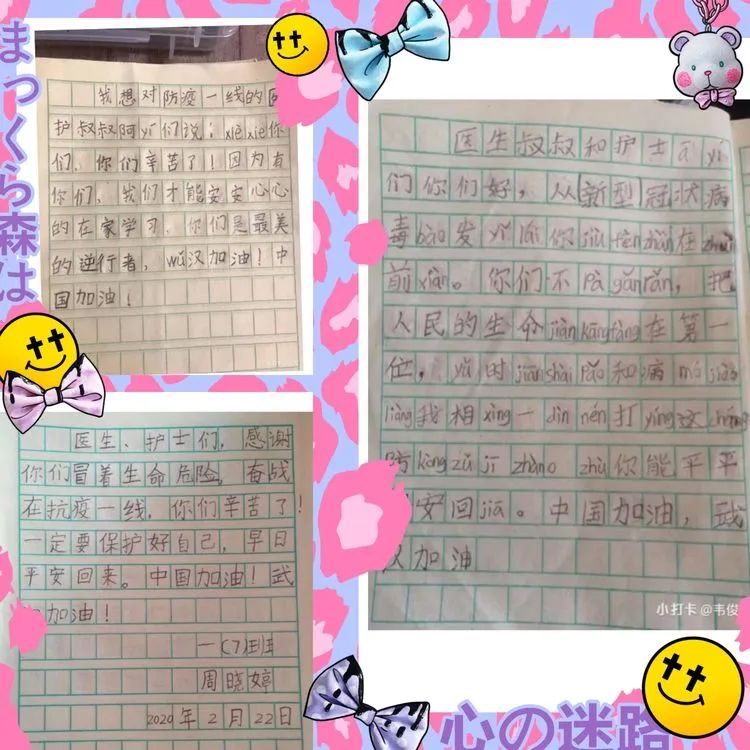 まっくら森は
我想对防疫一线的医
护叔叔阿yí们说：xièxie你
们，你们辛苦了！因为有
你们，我们才能安安心心
的在家学习，你们是最美
的逆行者，wǔ汉加油！中
国加油！
医生、护士们，感谢
你们冒着生命危险，奋战
在抗疫一线，你们辛苦了！
一定要保护好自己，早日
平安回来。中国加油！武
加油！
一(7)班
周晓婷
2020年2月22日
医生叔叔和护士ā yí
们你们好，从新型冠状病
毒bào发yǐ lái你jiù fèn zhàn在zhuì
前xiàn。你们不Pà gǎnrǎn，把
人民的生命jiànkāngfàng在第一
位，yǔ时jiān shài Pǎo和病mó jiào
liàng我相xìng一dìn nén打yíng这chǎng
防kòng zǔ jī zhàno zhù你能平平
安回jiā。中国加油，武
汉加油
小打卡 @韦俊
心の迷路